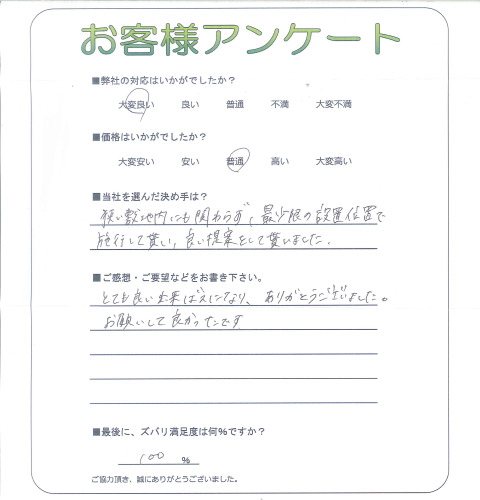 お客様アンケート
■弊社の対応はいかがでしたか？
大変良い 良い 普通 不満 大変不満
■価格はいかがでしたか？
大変安い 安い 普通 高い 大変高い
■当社を選んだ決め手は？
狭い敷地内にも関わらず、最少限の設置位置で
施行して貰い、良い提案をして貰いました。
■ご感想・ご要望などをお書き下さい。
とても良い出来ばえになり、ありがとうございました。
お願いして良かったです
■最後に、ズバリ満足度は何％ですか？
100 ％
ご協力頂き、誠にありがとうございました。